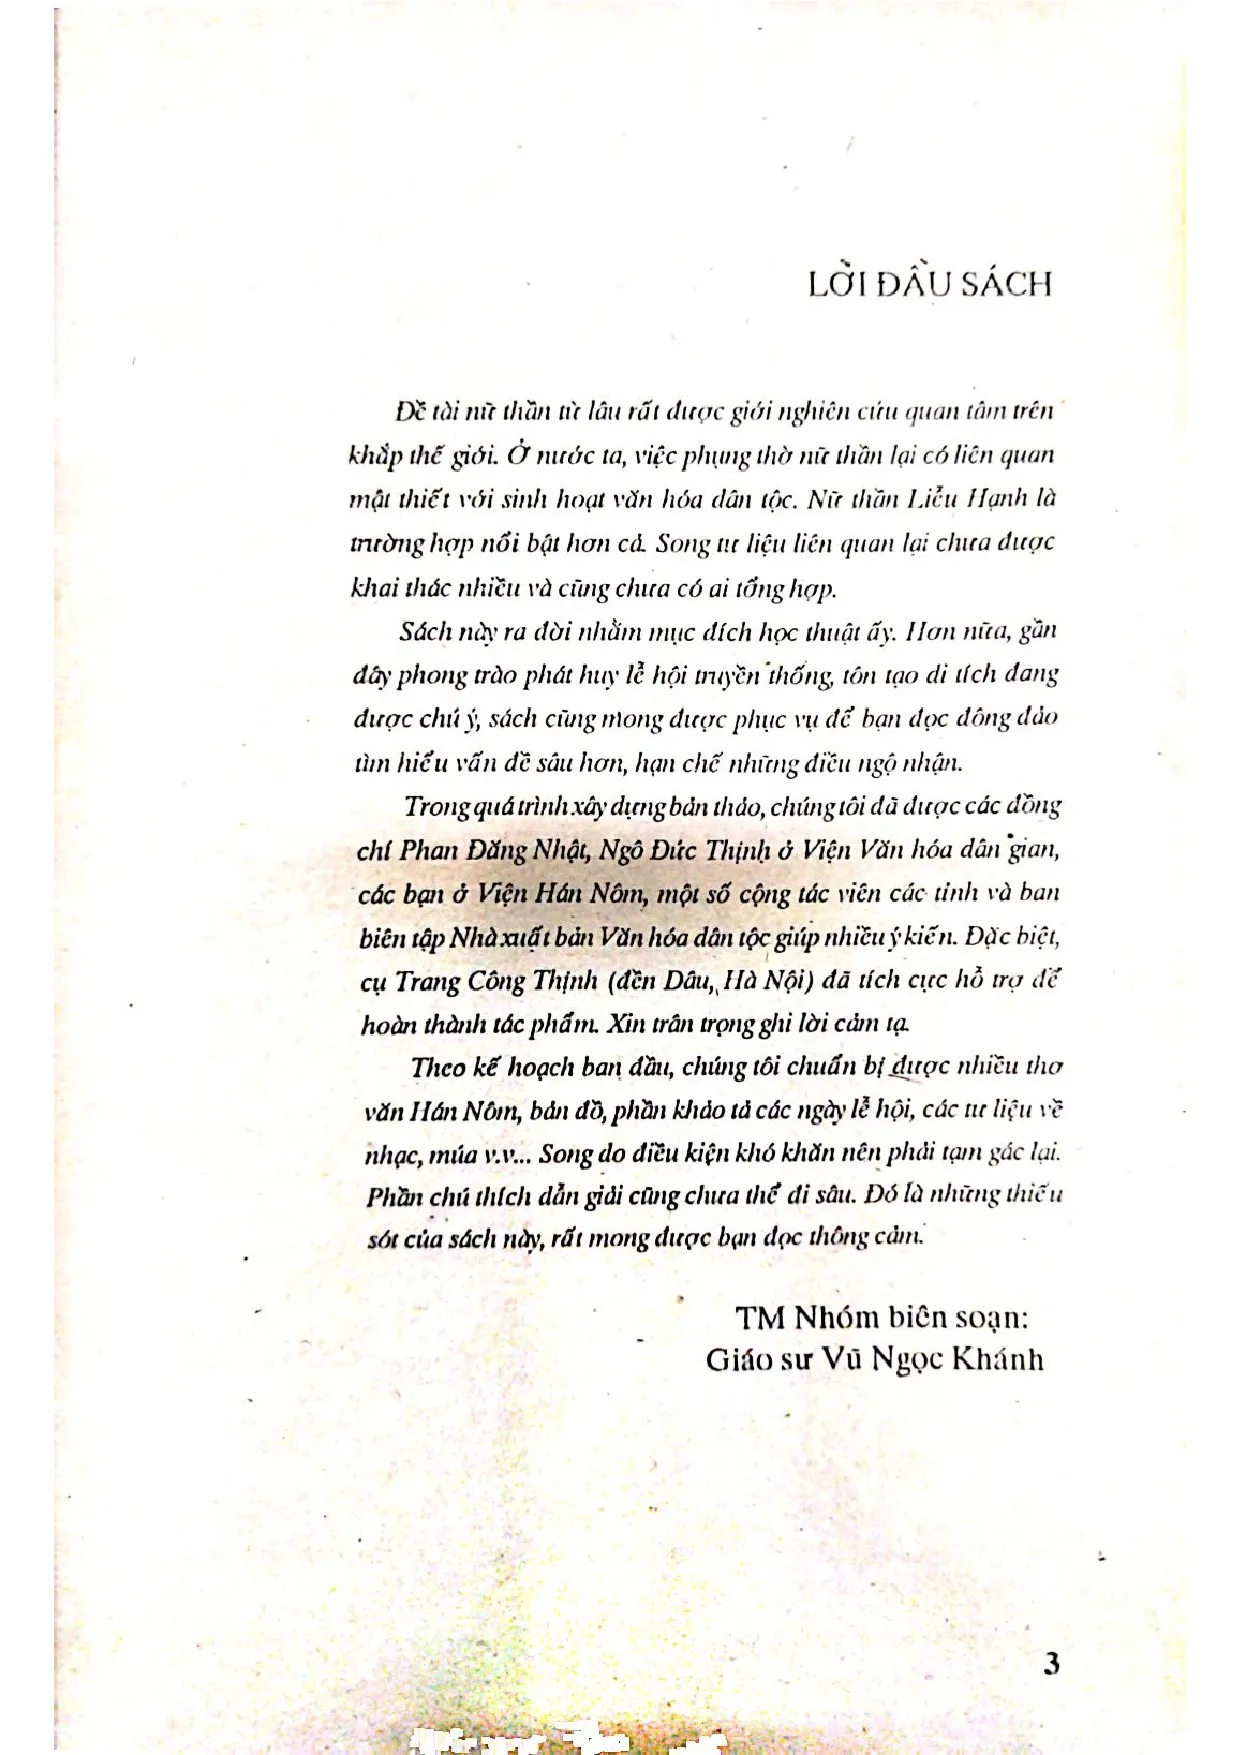 LỜI ĐẦU SÁCH
Đề tài nữ thần từ lâu rất được giới nghiên cứu quan tâm trên
khắp thế giới. Ở nước ta, việc phụng thờ nữ thần lại có liên quan
mật thiết với sinh hoạt văn hóa dân tộc. Nữ thần Liễu Hạnh là
trường hợp nổi bật hơn cả. Song tư liệu liên quan lại chưa được
khai thác nhiều và cũng chưa có ai tổng hợp.
Sách này ra đời nhằm mục đích học thuật ấy. Hơn nữa, gần
đây phong trào phát huy lễ hội truyền thống, tôn tạo di tích đang
được chú ý, sách cũng mong được phục vụ để bạn đọc đông đảo
tìm hiểu vấn đề sâu hơn, hạn chế những điều ngộ nhận.
Trong quá trình xây dựng bản thảo, chúng tôi đã được các đồng
chí Phan Đăng Nhật, Ngô Đức Thịnh ở Viện Văn hóa dân gian,
các bạn ở Viện Hán Nôm, một số cộng tác viên các tỉnh và ban
biên tập Nhà xuất bản Văn hóa dân tộc giúp nhiều ý kiến. Đặc biệt,
cụ Trang Công Thịnh (đền Dâu, Hà Nội) đã tích cực hỗ trợ để
hoàn thành tác phẩm. Xin trân trọng ghi lời cảm tạ.
Theo kế hoạch ban đầu, chúng tôi chuẩn bị được nhiều thơ
văn Hán Nôm, bản đồ, phần khảo tả các ngày lễ hội, các tư liệu về
nhạc, múa v.v... Song do điều kiện khó khăn nên phải tạm gác lại.
Phần chú thích dẫn giải cũng chưa thể đi sâu. Đó là những thiếu
sót của sách này, rất mong được bạn đọc thông cảm.
TM Nhóm biên soạn:
Giáo sư Vũ Ngọc Khánh
3